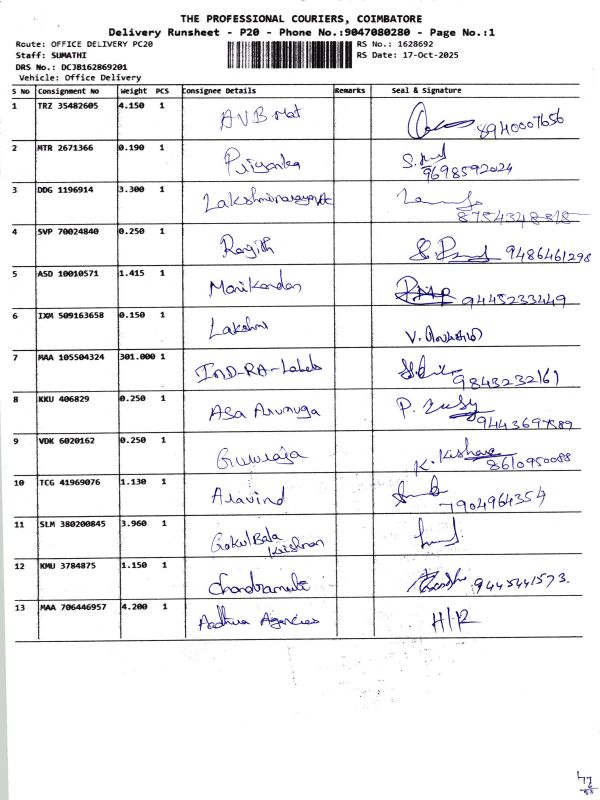 THE PROFESSIONAL COURIERS, COIMBATORE
Delivery Runsheet - P20 - Phone No.:9047080280 - Page No.:1
Route: OFFICE DELIVERY PC20 RS No.: 1628692
Staff: SUMATHI RS Date: 17-Oct-2025
DRS No.: DCJB162869201
Vehicle: Office Delivery
S No Consignment No Weight PCS Consignee Details Remarks Seal & Signature
1 TRZ 35482605 4.150 1 AVB Mat 8940007656
2 MTR 2671366 0.190 1 Priyanka 9698592024
3 DDG 1196914 3.300 1 8754348818
4 SVP 70024840 0.250 1 Ranjith 9486461298
5 ASD 10010571 1.415 1 Manikandan 9445233449
6 IXM 509163658 0.150 1 Lakshmi V.
7 MAA 105504324 301.000 1 IND-RA-Labels 9843232161
8 KKU 406829 0.250 1 Asa Arumuga P. 9443697589
9 VDK 6020162 0.250 1 Gururaja K. Kishore 8610950088
10 TCG 41969076 1.130 1 Aravind 7904964354
11 SLM 380200845 3.960 1 GokulBala Krishnan
12 KMU 3784875 1.150 1 9445441573.
13 MAA 706446957 4.200 1 Aadhya Agencies H/R